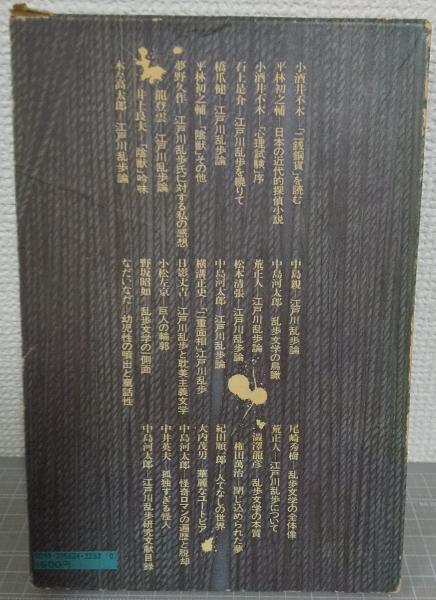 小酒井不木―「二銭銅貨」を読む
平林初之輔―日本の近代的探偵小説
小酒井不木―「心理試験」序
石上是介―江戸川乱歩を繞りて
橋爪健―江戸川乱歩論
平林初之輔―「陰獣」その他
夢野久作―江戸川乱歩氏に対する私の感想
龍登雲―江戸川乱歩論
井上良夫―「陰獣」吟味
木々高太郎―江戸川乱歩論
中島親―江戸川乱歩論
中島河太郎―乱歩文学の鳥瞰
荒正人―江戸川乱歩論
松本清張―江戸川乱歩論
中島河太郎―江戸川乱歩論
横溝正史―「二重面相」江戸川乱歩
日影丈吉―江戸川乱歩と耽美主義文学
小松左京―巨人の輪郭
野坂昭如―乱歩文学の一側面
なだいなだ―幼児性の噴出と童話性
尾崎秀樹―乱歩文学の全体像
荒正人―江戸川乱歩について
澁澤龍彦―乱歩文学の本質
権田萬治―閉じ込められた夢
紀田順一郎―人でなしの世界
大内茂男―華麗なユートピア
中島河太郎―怪奇ロマンの遍歴と脱却
中井英夫―孤独すぎる怪人
中島河太郎―江戸川乱歩研究文献目録
1600円